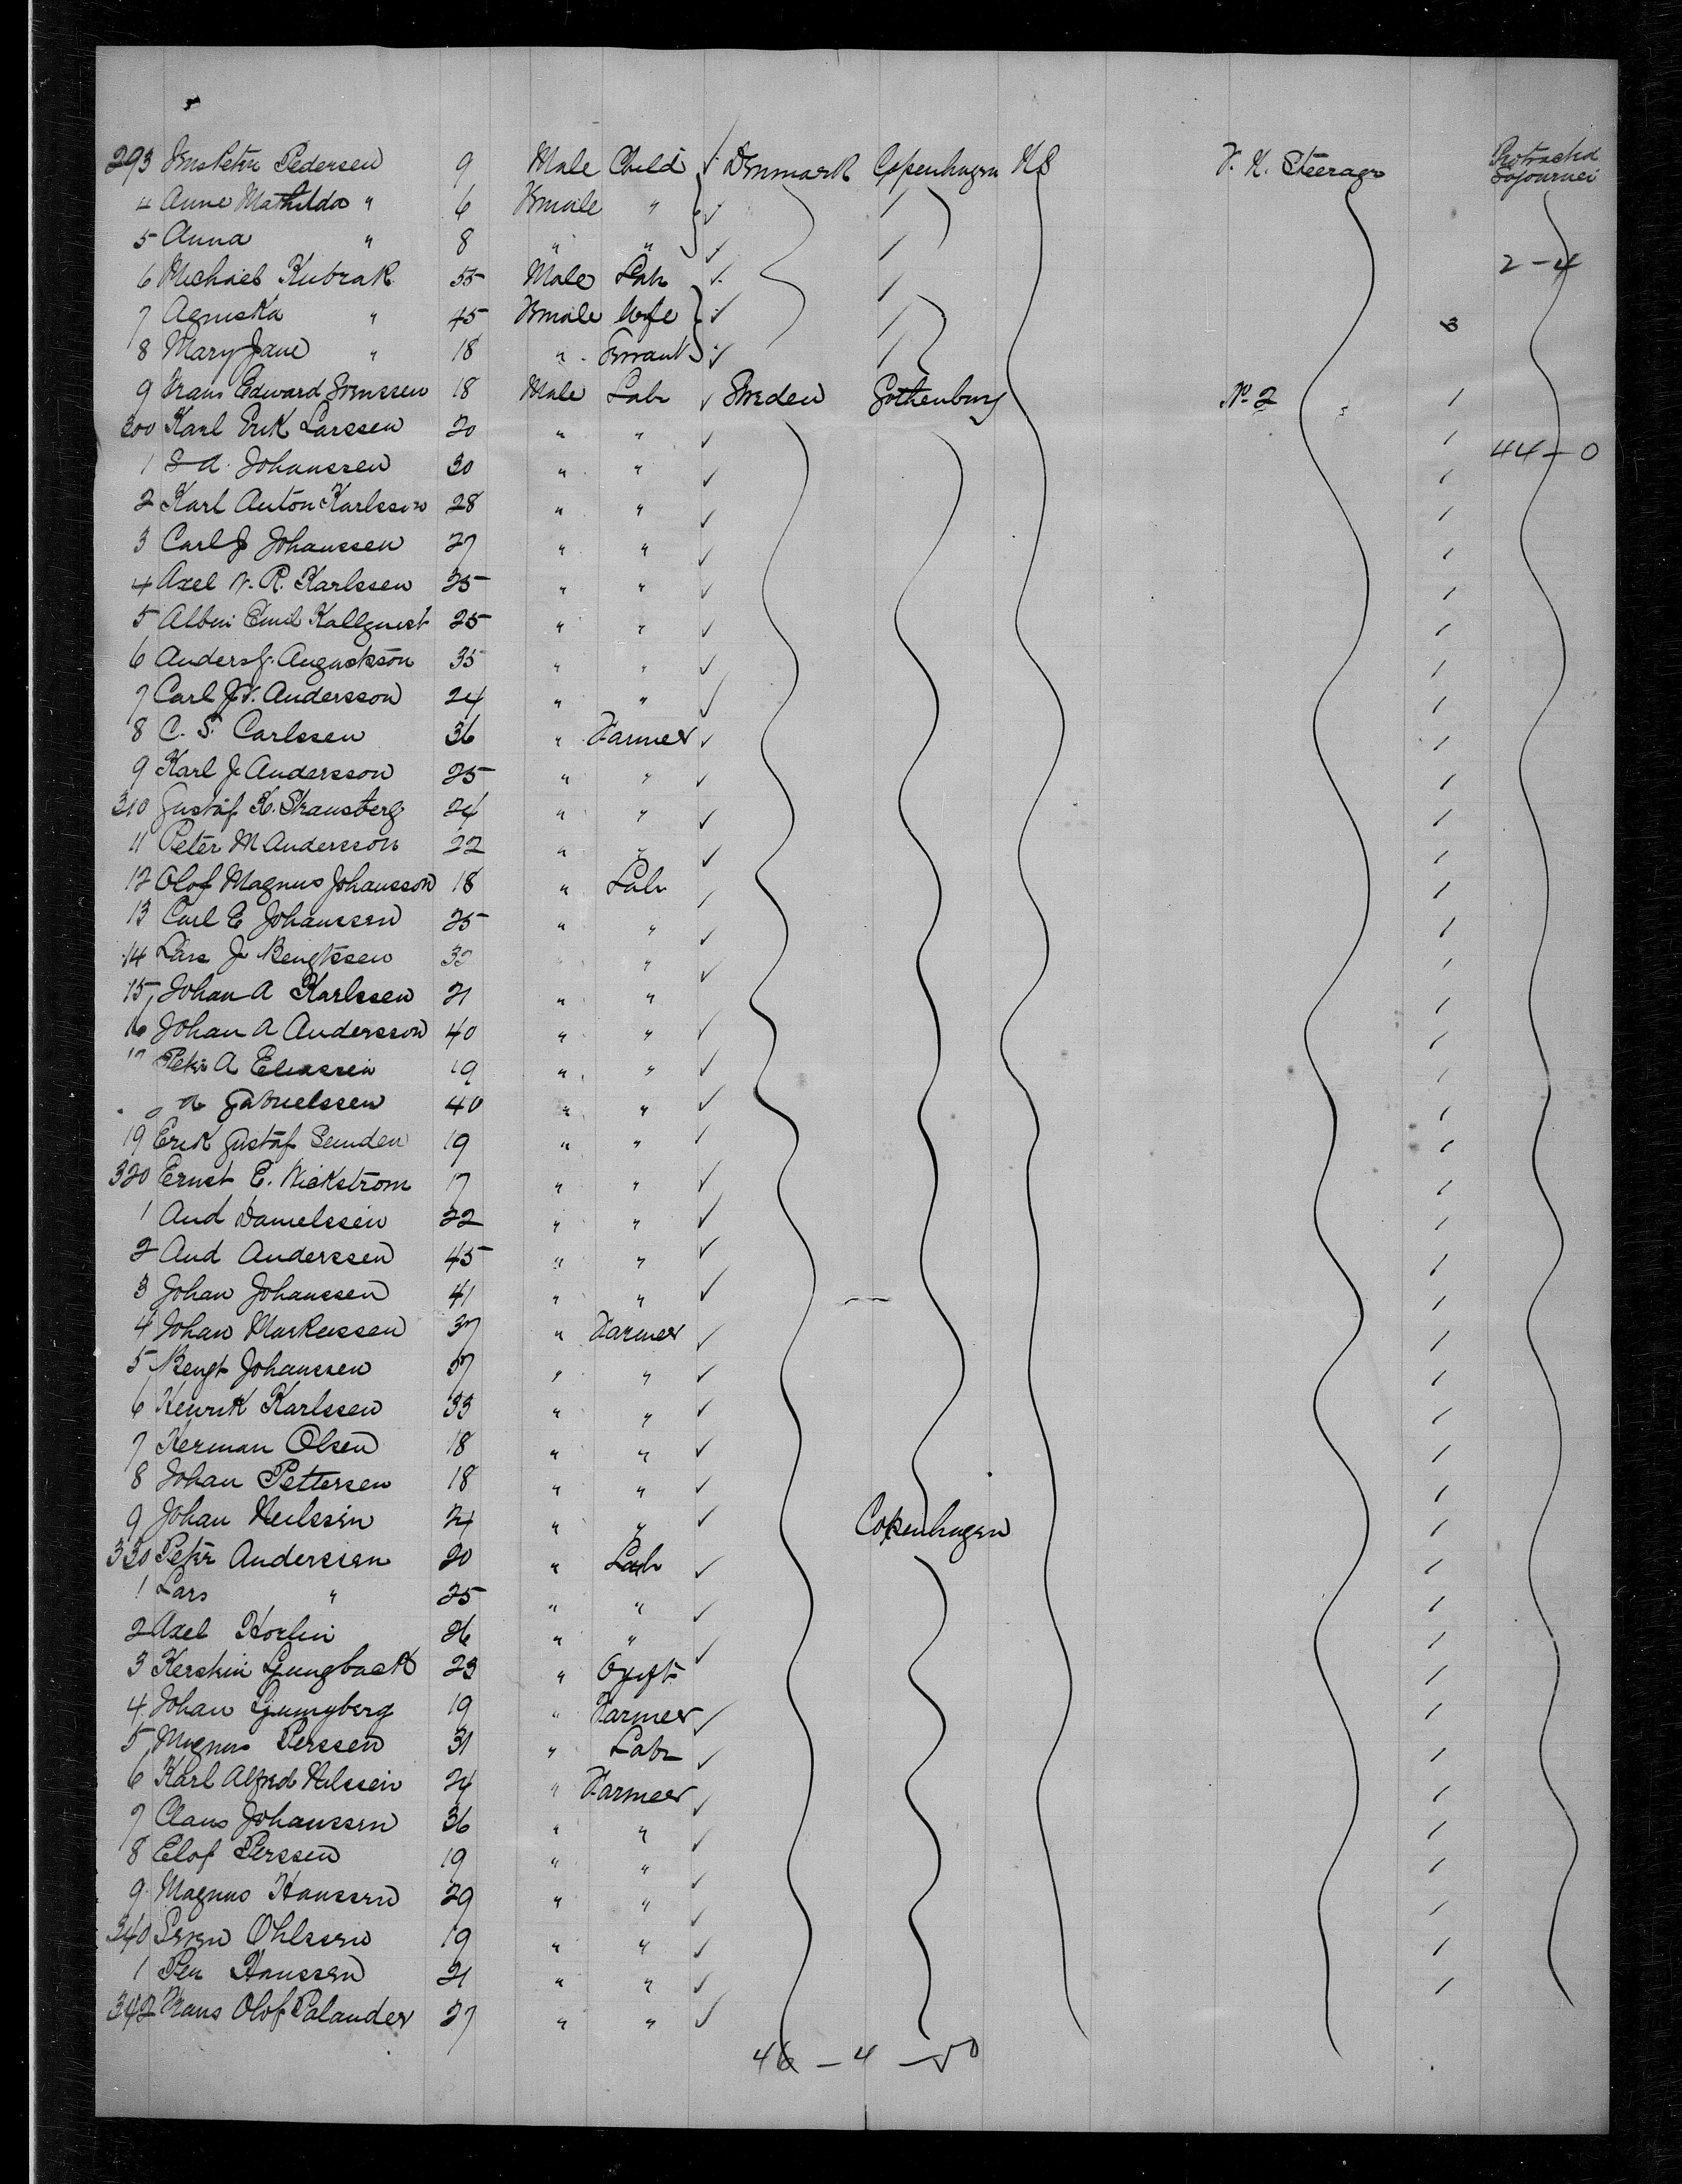 293 Jens Peter Pedersen 9 Male Child Denmark Copenhagen U.S. F. H. Steerage Protracted Sojourner
4 Anne Mathilda " 6 Female "
5 Anna " 8 " "
6 Michael Kubrak 55 Male Labr 2-4
7 Agniska " 45 Female Wife 3
8 Mary Jane " 18 " Servant
9 Frans Edward 18 Male Labr Sweden Gothenburg No 2 1
300 Karl Erik Larssen 20 " " 1 44-0
1 S A. Johanssen 30 " " 1
2 Karl Anton Karlsson 28 " " 1
3 Carl J Johanssen 27 " " 1
4 Axel V. R. Karlssen 25 " " 1
5 Albin Emil Kallquist 25 " " 1
6 Anders G. Augustson 35 " " 1
7 Carl J. V. Andersson 24 " " 1
8 C. S. Carlssen 36 " Farmer 1
9 Karl J Andersson 25 " " 1
310 Gustaf K. 24 " " 1
11 Peter M Andersson 22 " " 1
12 Olof Magnus Johansson 18 " Labr 1
13 Carl E Johanssen 25 " " 1
14 Lars J Bengtssen " " 1
15 Johan A Karlssen 21 " " 1
16 Johan A Andersson 40 " " 1
17 Peter A Eliassen 19 " " 1
A Gabrielssen 40 " " 1
19 Erik Gustaf 19 " " 1
320 Ernst E. Wickstrom 17 " " 1
1 And Danielssen 22 " " 1
2 And Anderssen 45 " " 1
3 Johan Johanssen 41 " " 1
4 Johan Markussen 37 " Farmer 1
5 Bengt Johanssen 37 " " 1
6 Henrik Karlssen 33 " " 1
7 Herman Olsen 18 " " 1
8 Johan Pettersen 18 " " 1
9 Johan Neilssen 24 " " Copenhagen 1
330 Peter Anderssen 20 " Labr 1
1 Lars " 25 " " 1
2 Axel Horlin 26 " " 1
3 Kerstin Ljungback 23 " Ogift 1
4 Johan Ljungberg 19 " Farmer 1
5 Magnus Perssen 31 " Labr 1
6 Karl Alfred Nilssen 24 " Farmer 1
7 Claus Johanssen 36 " " 1
8 Elof Perssen 19 " " 1
9 Magnus Hanssen 29 " " 1
340 Sven Ohlssen 19 " " 1
1 Per Hanssen 21 " " 1
342 Frans Olof Palander 27 " "
46 - 4 - 50